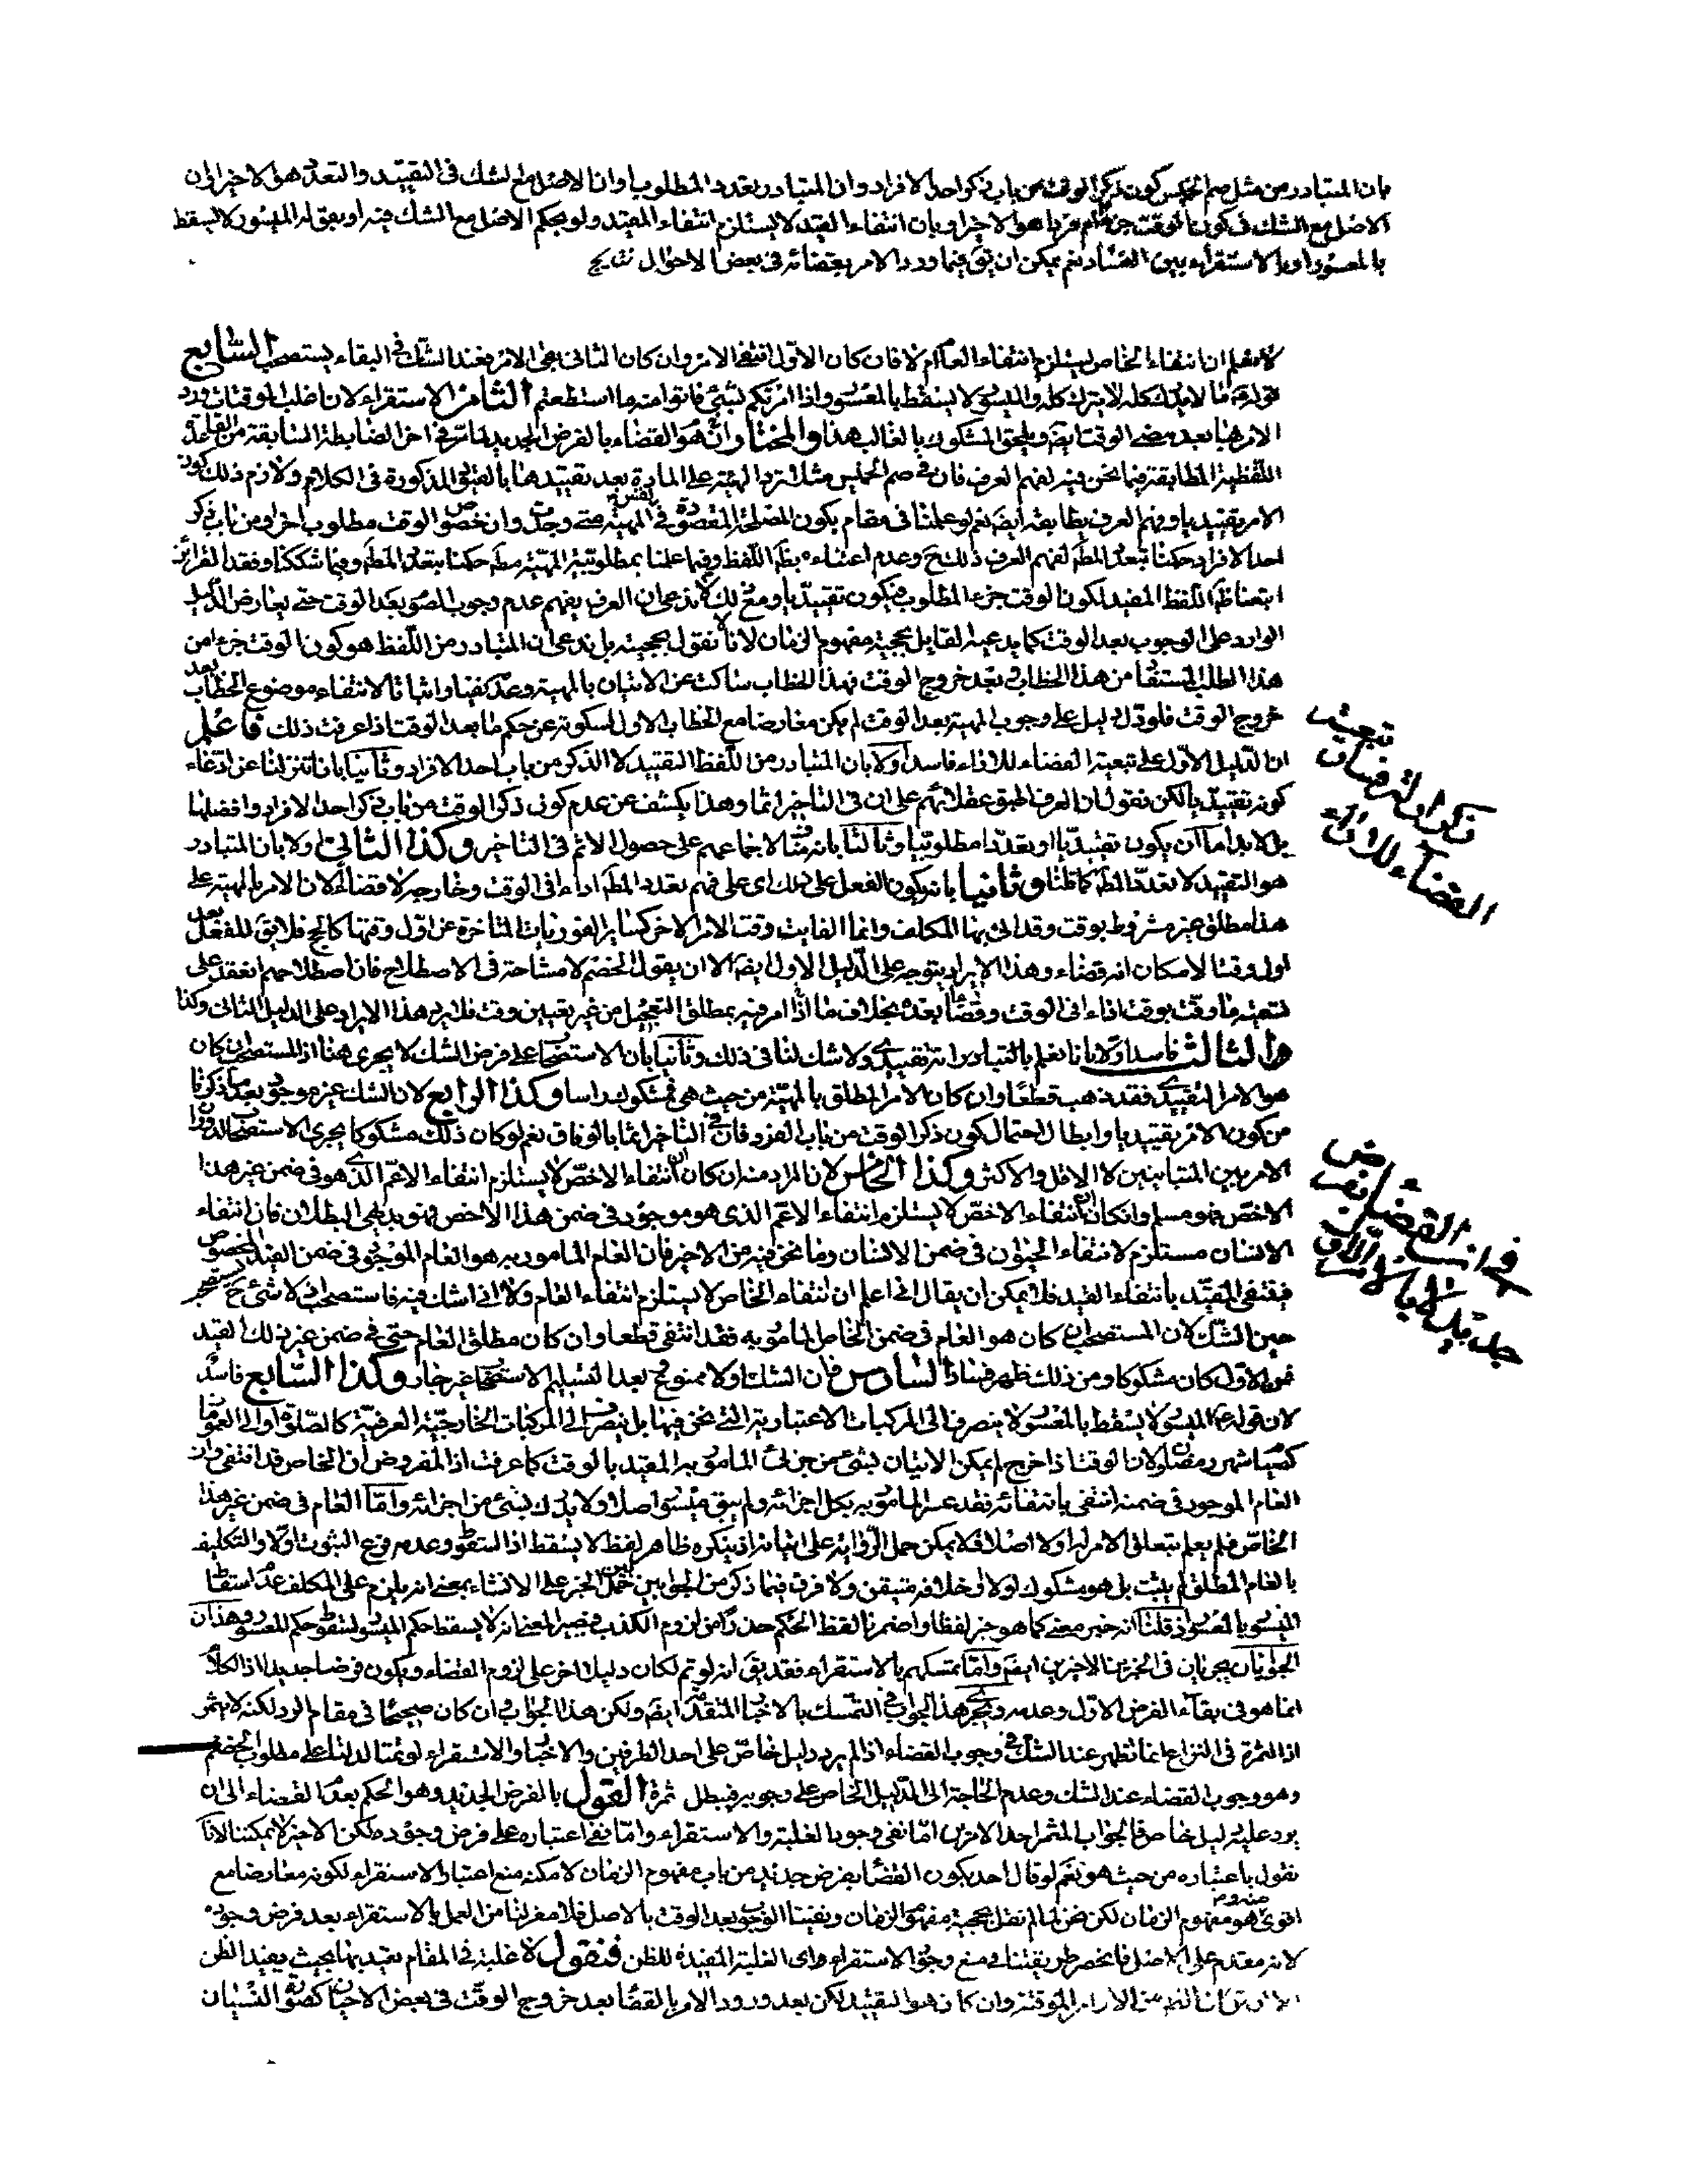 فان المتبادر من مثل صم الخميس كون ذكر الوقت من باب ذكر احد الافراد وان المتبادر تعدد المطلوب او ان الاصل مع الشك في التقييد والتعدد هو الاخير او ان
الاصل مع الشك في كون الوقت جزء ام فردا هو الاخير او بان انتفاء القيد لا يستلزم انتفاء المقيد ولو بحكم الاصل مع الشك فيه او بقوله الميسور لا يسقط
بالمعسور او بالاستقراء بين الفساد نعم يمكن ان يق فيما ورد الامر بقضائه في بعض الاحوال
لا نعلم ان انتفاء الخاص يستلزم انتفاء العام ام لا فان كان الاول انتفى الامر وان كان الثاني بقى الامر فعند الشك في البقاء يستصحب السابع
قوله ع ما لا يدرك كله لا يترك كله والميسور لا يسقط بالمعسور واذا امرتكم بشيء فاتوا منه ما استطعتم الثامن الاستقراء لان اغلب الموقتات ورد
الامر بها بعد مضي الوقت ايضا ويلحق المشكوك بالغالب هذا والمختار انه هو القضاء بالفرض الجديد لما مر في اخر الضابطة السابقة من القاعدة
اللفظية المطابقة فيما نحن فيه لفهم العرف فان في صم الخميس مثلا ترد الهيئة على المادة بعد تقييدها بالقيود المذكورة في الكلام ولازم ذلك كون
الامر تقييديا وفهم العرف يطابقه ايضا نعم لو علمنا في مقام بكون المصلحة المقصودة في نفس المهية متى وجدت وان خصوص الوقت مطلوب اخر او من باب ذكر
احد الافراد حكمنا بتعدد المط لفهم العرف ذلك ح وعدم اعتناءه بظ اللفظ وفيما علمنا بمطلوبية المهية مط حكمنا بتعدد المط وفيما شككنا وفقد القرائن
اتبعنا ظ اللفظ المفيد لكون الوقت جزء المطلوب فيكون تقييديا ومع ذلك لا ندعي ان العرف يفهم عدم وجوب الصوم بعد الوقت حتى يعارض الدليل
الوارد على الوجوب بعد الوقت كما يدعيه القايل بحجية مفهوم الزمان لانا لا نقول بحجيته بل ندعي ان المتبادر من اللفظ هو كون الوقت جزء من
هذا الطلب المستفاد من هذا الخطاب في بعد خروج الوقت فهذا الخطاب ساكت عن الاتيان بالمهية وعدمه نفيا واثباتا لانتفاء موضوع الخطاب بعد
خروج الوقت فلو دل دليل على وجوب المهية بعد الوقت لم يكن معارضا مع الخطاب الاول لسكوته عن حكم ما بعد الوقت اذا عرفت ذلك فاعلم
ان الدليل الاول على تبعية القضاء للاداء فاسد اولا بان المتبادر من اللفظ التقييد لا الذكر من باب احد الافراد وثانيا بانا تنزلنا عن ادعاء
كونه تقييديا لكن نقول ان العرف اطبق عقلائهم على ان في التاخير اثما وهذا يكشف عن عدم كون ذكر الوقت من باب ذكر احد الافراد وافضلها
بل لا بد اما ان يكون تقييديا او تعددا مطلوبيا وثالثا بانه مناف لاجماعهم على حصول الاثم في التاخير وكذا الثاني اولا بان المتبادر
هو التقييد لا تعدد المط كما قلنا وثانيا بانه يكون الفعل على ذلك اي على فهم تعدد المط اداء في الوقت وخارجه لا قضاء لان الامر بالمهية على
هذا مطلق غير مشروط بوقت وقد اتى بها المكلف وانما الفايت وقت الامر الاخر كساير الفوريات المتاخرة عن اول وقتها كالحج فلا يق للفعل بعد
اول وقتها لامكان انه قضاء وهذا الايراد يتوجه على الدليل الاول ايضا الا ان يقول الخصم لا مشاحة في الاصطلاح فان اصطلاحهم انعقد على
تسمية ما وقت بوقت اداء في الوقت وقضاء بعده بخلاف ما اذا امر فيه بمطلق التعجيل من غير تعيين وقت فلا يرد هذا الايراد على الدليل الثاني وكذا
والثالث فاسد اولا بانا نعلم بالتبادر انه تقييدي ولا شك لنا في ذلك وثانيا بان الاستصحاب على فرض الشك لا يجري هنا اذ المستصحب ان كان
هو الامر التقييدي فقد ذهب قطعا وان كان الامر المطلق بالمهية من حيث هي فمشكوك راسا وكذا الرابع لان الشك غير موجود بعد ما ذكرنا
من كون الامر تقييديا وابطال احتمال كون ذكر الوقت من باب الفرد فان في التاخير اثما بالوفاق نعم لو كان ذلك مشكوكا يجري الاستصحاب لدوران
الامر بين المتباينين لا الاقل والاكثر وكذا الخامس لان المراد منه ان كان ان انتفاء الاخص لا يستلزم انتفاء الاعم الذي هو في ضمن غير هذا
الاخص فهو مسلم وان كان ان انتفاء الاخص لا يستلزم انتفاء الاعم الذي هو موجود في ضمن هذا الاخص فهو بديهي البطلان فان انتفاء
الانسان مستلزم لانتفاء الحيوان في ضمن الانسان وما نحن فيه من الاخير فان العام المامور به هو العام الموجود في ضمن القيد المخصوص
فينتفى المقيد بانتفاء القيد فلا يمكن ان يقال اني اعلم ان انتفاء الخاص لا يستلزم انتفاء العام ولا اني اشك فيه فاستصحب اذ لا شيء ح يستصحب
حين الشك لان المستصحب ان كان هو العام في ضمن الخاص المامور به فقد انتفى قطعا وان كان مطلق العام حتى في ضمن غير ذلك القيد
فمن الاول كان مشكوكا ومن ذلك ظهر فساد السادس فان الشك اولا ممنوع وبعد التسليم الاستصحاب غير جار وكذا السابع فاسد
لان قوله ع الميسور لا يسقط بالمعسور لا ينصرف الى المركبات الاعتبارية التي نحن فيها بل ينصرف الى المركبات الخارجية العرفية كالصلوة او الى العموم
كصيام شهر رمضان ولان الوقت اذا خرج لم يمكن الاتيان بشيء من جزئي المامور به المقيد بالوقت كما عرفت اذ المفروض ان الخاص قد انتفى وان
العام الموجود في ضمنه انتفى بانتفائه فقد عسر المامور به بكل اجزائه ولم يبق ميسور اصلا ولا يدرك بشيء من اجزائه واما العام في ضمن غير هذا
الخاص فلم يعلم تعلق الامر به اولا اصلا فلا يمكن حمل الرواية على اثباته اذ ينكره ظاهر لفظ لا يسقط اذ السقوط وعدمه فرع الثبوت اولا والتكليف
بالعام المطلق لم يثبت بل هو مشكوك اولا وخلافه متيقن ولا فرق فيما ذكر من الجوابين بين حمل الخبر على الانشاء بمعنى انه يلزم على المكلف عدم اسقاط
الميسور بالمعسور او قلنا انه خبر معنى كما هو خبر لفظا واضمرنا لفظ الحكم حذرا من لزوم الكذب فيصير المعنى انه لا يسقط حكم الميسور لسقوط حكم المعسور وهذان
الجوابان يجريان في الخبرين الاخيرين ايضا واما تمسكهم بالاستقراء فقد يق انه لو تم لكان دليلا اخر على لزوم القضاء ويكون فرضا جديدا اذ الكلام
انما هو في بقاء الفرض الاول وعدمه ويجري هذا الجواب في التمسك بالاخبار المتقدمة ايضا ولكن هذا الجواب وان كان صحيحا في مقام الرد لكنه لا يثمر
اذ الثمرة في النزاع انما تظهر عند الشك في وجوب القضاء اذا لم يرد دليل خاص على احد الطرفين والاخبار والاستقراء لو تمتا لدلتا على مطلوب الخصم
وهو وجوب القضاء عند الشك وعدم الحاجة الى الدليل الخاص على وجوبه فيبطل ثمرة القول بالفرض الجديد وهو الحكم بعدم القضاء الى ان
يرد عليه دليل خاص فالجواب المثمر احد الامرين اما نفى وجود الغلبة والاستقراء واما نفى اعتباره على فرض وجوده لكن الاخير لا يمكننا لانا
نقول باعتباره من حيث هو نعم لو قال احد بكون القضاء بفرض جديد من باب مفهوم الزمان لامكنه منع اعتبار الاستقراء لكونه معارضا مع
اقوى منه وهو مفهوم الزمان لكن نحن لما لم نقل بحجية مفهوم الزمان ونفينا الوجوب بعد الوقت بالاصل فلا مفر لنا من العمل بالاستقراء بعد فرض وجوده
لانه مقدم على الاصل فانحصر طريقتنا في منع وجود الاستقراء واي الغلبة المفيدة للظن فنقول لا غلبة في المقام يعتد بها بحيث يفيد الظن
الا ان الظ من الاوامر الموقتة وان كان هو التقييد لكن بعد ورود الامر بالقضاء بعد خروج الوقت في بعض الاحيان كصورة النسيان
تبعية
القضاء للاداء
في ان القضاء